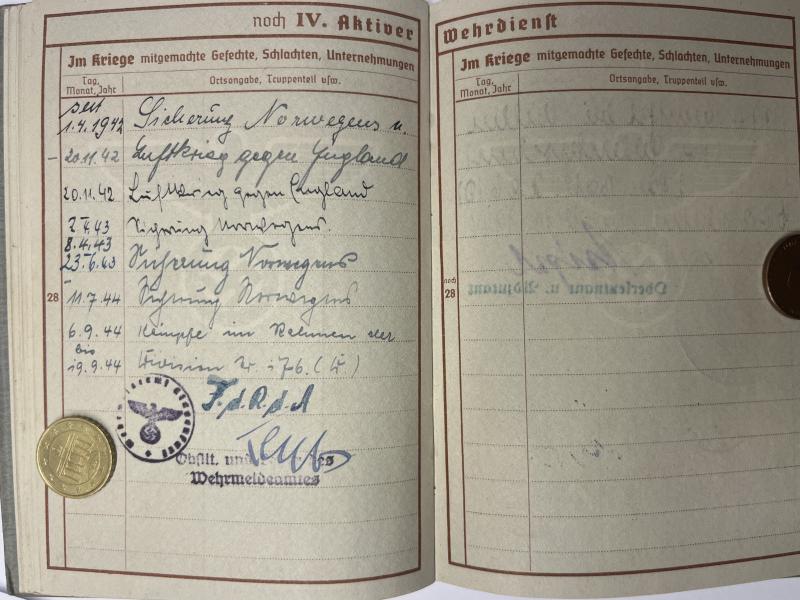 noch IV. Aktiver
Im Kriege mitgemachte Gefechte, Schlachten, Unternehmungen
Tag, Monat, Jahr
Ortsangabe, Truppenteil usw.
seit
1.4.1942 Sicherung Norwegens u.
- 20.11.42 Luftkrieg gegen England
20.11.42 Luftkrieg gegen England
43 Sicherung Norwegens.
8.4.43
23.6.43 Sicherung Norwegens
28
11.7.44 Sicherung Norwegens
6.9.44 Kämpfe im Rahmen der
bis
19.9.44 Division Nr. 176. (
F.d.R.d.A
Obstlt. und
Wehrmeldeamtes
Wehrdienst
Im Kriege mitgemachte Gefechte, Schlachten, Unternehmungen
Tag, Monat, Jahr
Ortsangabe, Truppenteil usw.
noch
28
Oberleutnant u. Adjutant